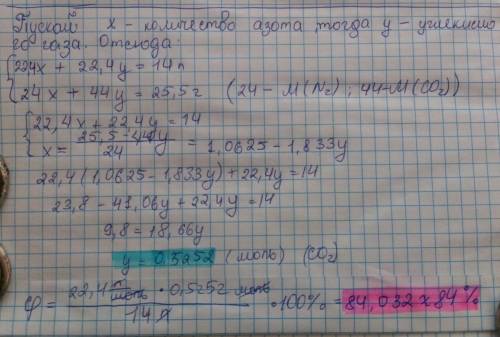 Пускай х - количество азота, тогда у - углекисло
го газа. Отсюда:
{22,4x + 22,4y = 14 л
{24x + 44y = 25,5г (24 - M(N₂); 44-M(CO₂))
{22,4x + 22,4y = 14
{x = (25,5-44y)/24 = 1,0625 - 1,833y
22,4(1,0625 - 1,833y) + 22,4y = 14
23,8 - 41,06y + 22,4y = 14
9,8 = 18,66y
y = 0,5252 (моль) (CO₂)
φ = (22,4 л/моль · 0,5252 моль)/14 л · 100% = 84,032 ≈ 84%